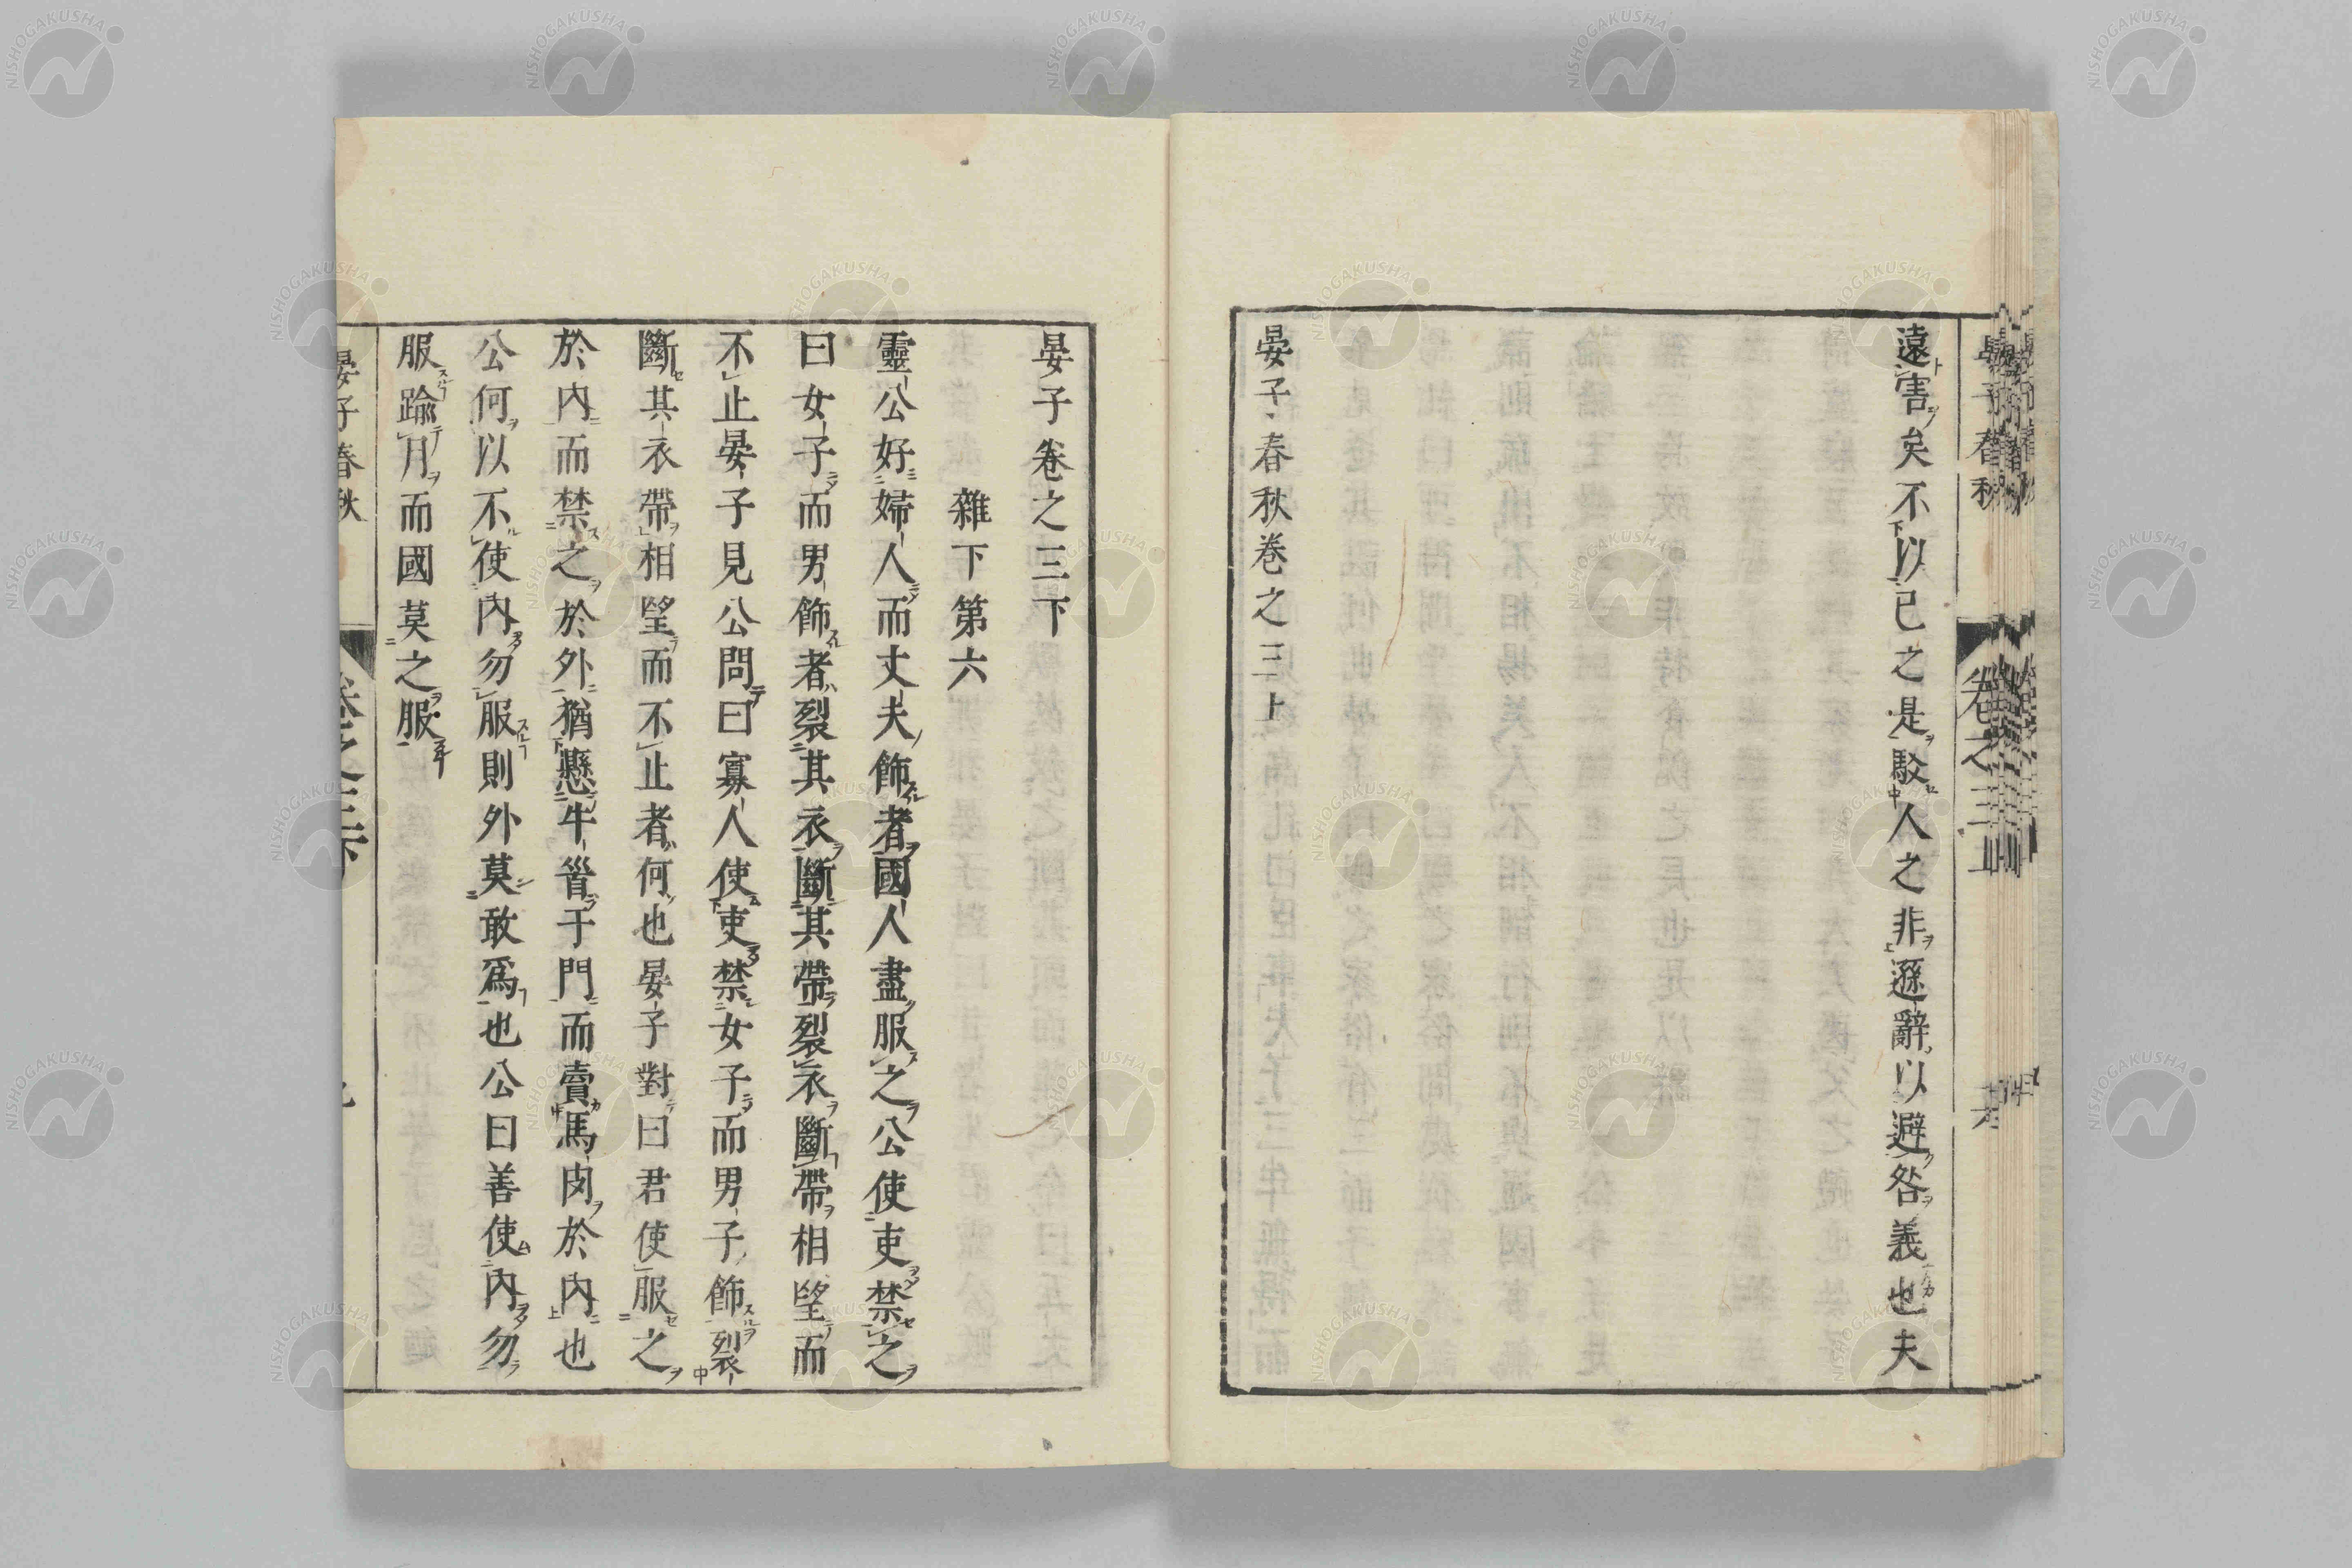 遠害矣不以已之是駁人之非遜辭以避咎義也夫
晏子春秋卷之三上
晏子卷之三下
雜下第六
靈公好婦人而丈夫飾者國人盡服之公使吏禁之
曰女子而男飾者裂其衣斷其帶裂衣斷帶相望而
不止晏子見公問曰寡人使吏禁女子而男子飾裂
斷其衣帶相望而不止者何也晏子對曰君使服之
於內而禁之於外猶懸牛首于門而賣馬肉於內也
公何以不使內勿服則外莫敢爲也公曰善使內勿
服踰月而國莫之服
晏子春秋
卷之三下
NISHOGAKUSHA